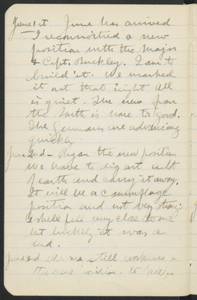 June 1st June has arrived
I reconnoitred a new
position with the Major
& Capt. Buckley. I am to
build it. We marked
it out that night. All
is quiet. The news from
the South is none to good.
The Germans are advancing
quickly
June 2nd - Began the new position
We have to dig out all
earth and carry it away.
It will be a camouflage
position and not very strong
a shell fell very close to me
but luckily it was a
dud.
June 3rd We are still working on
position